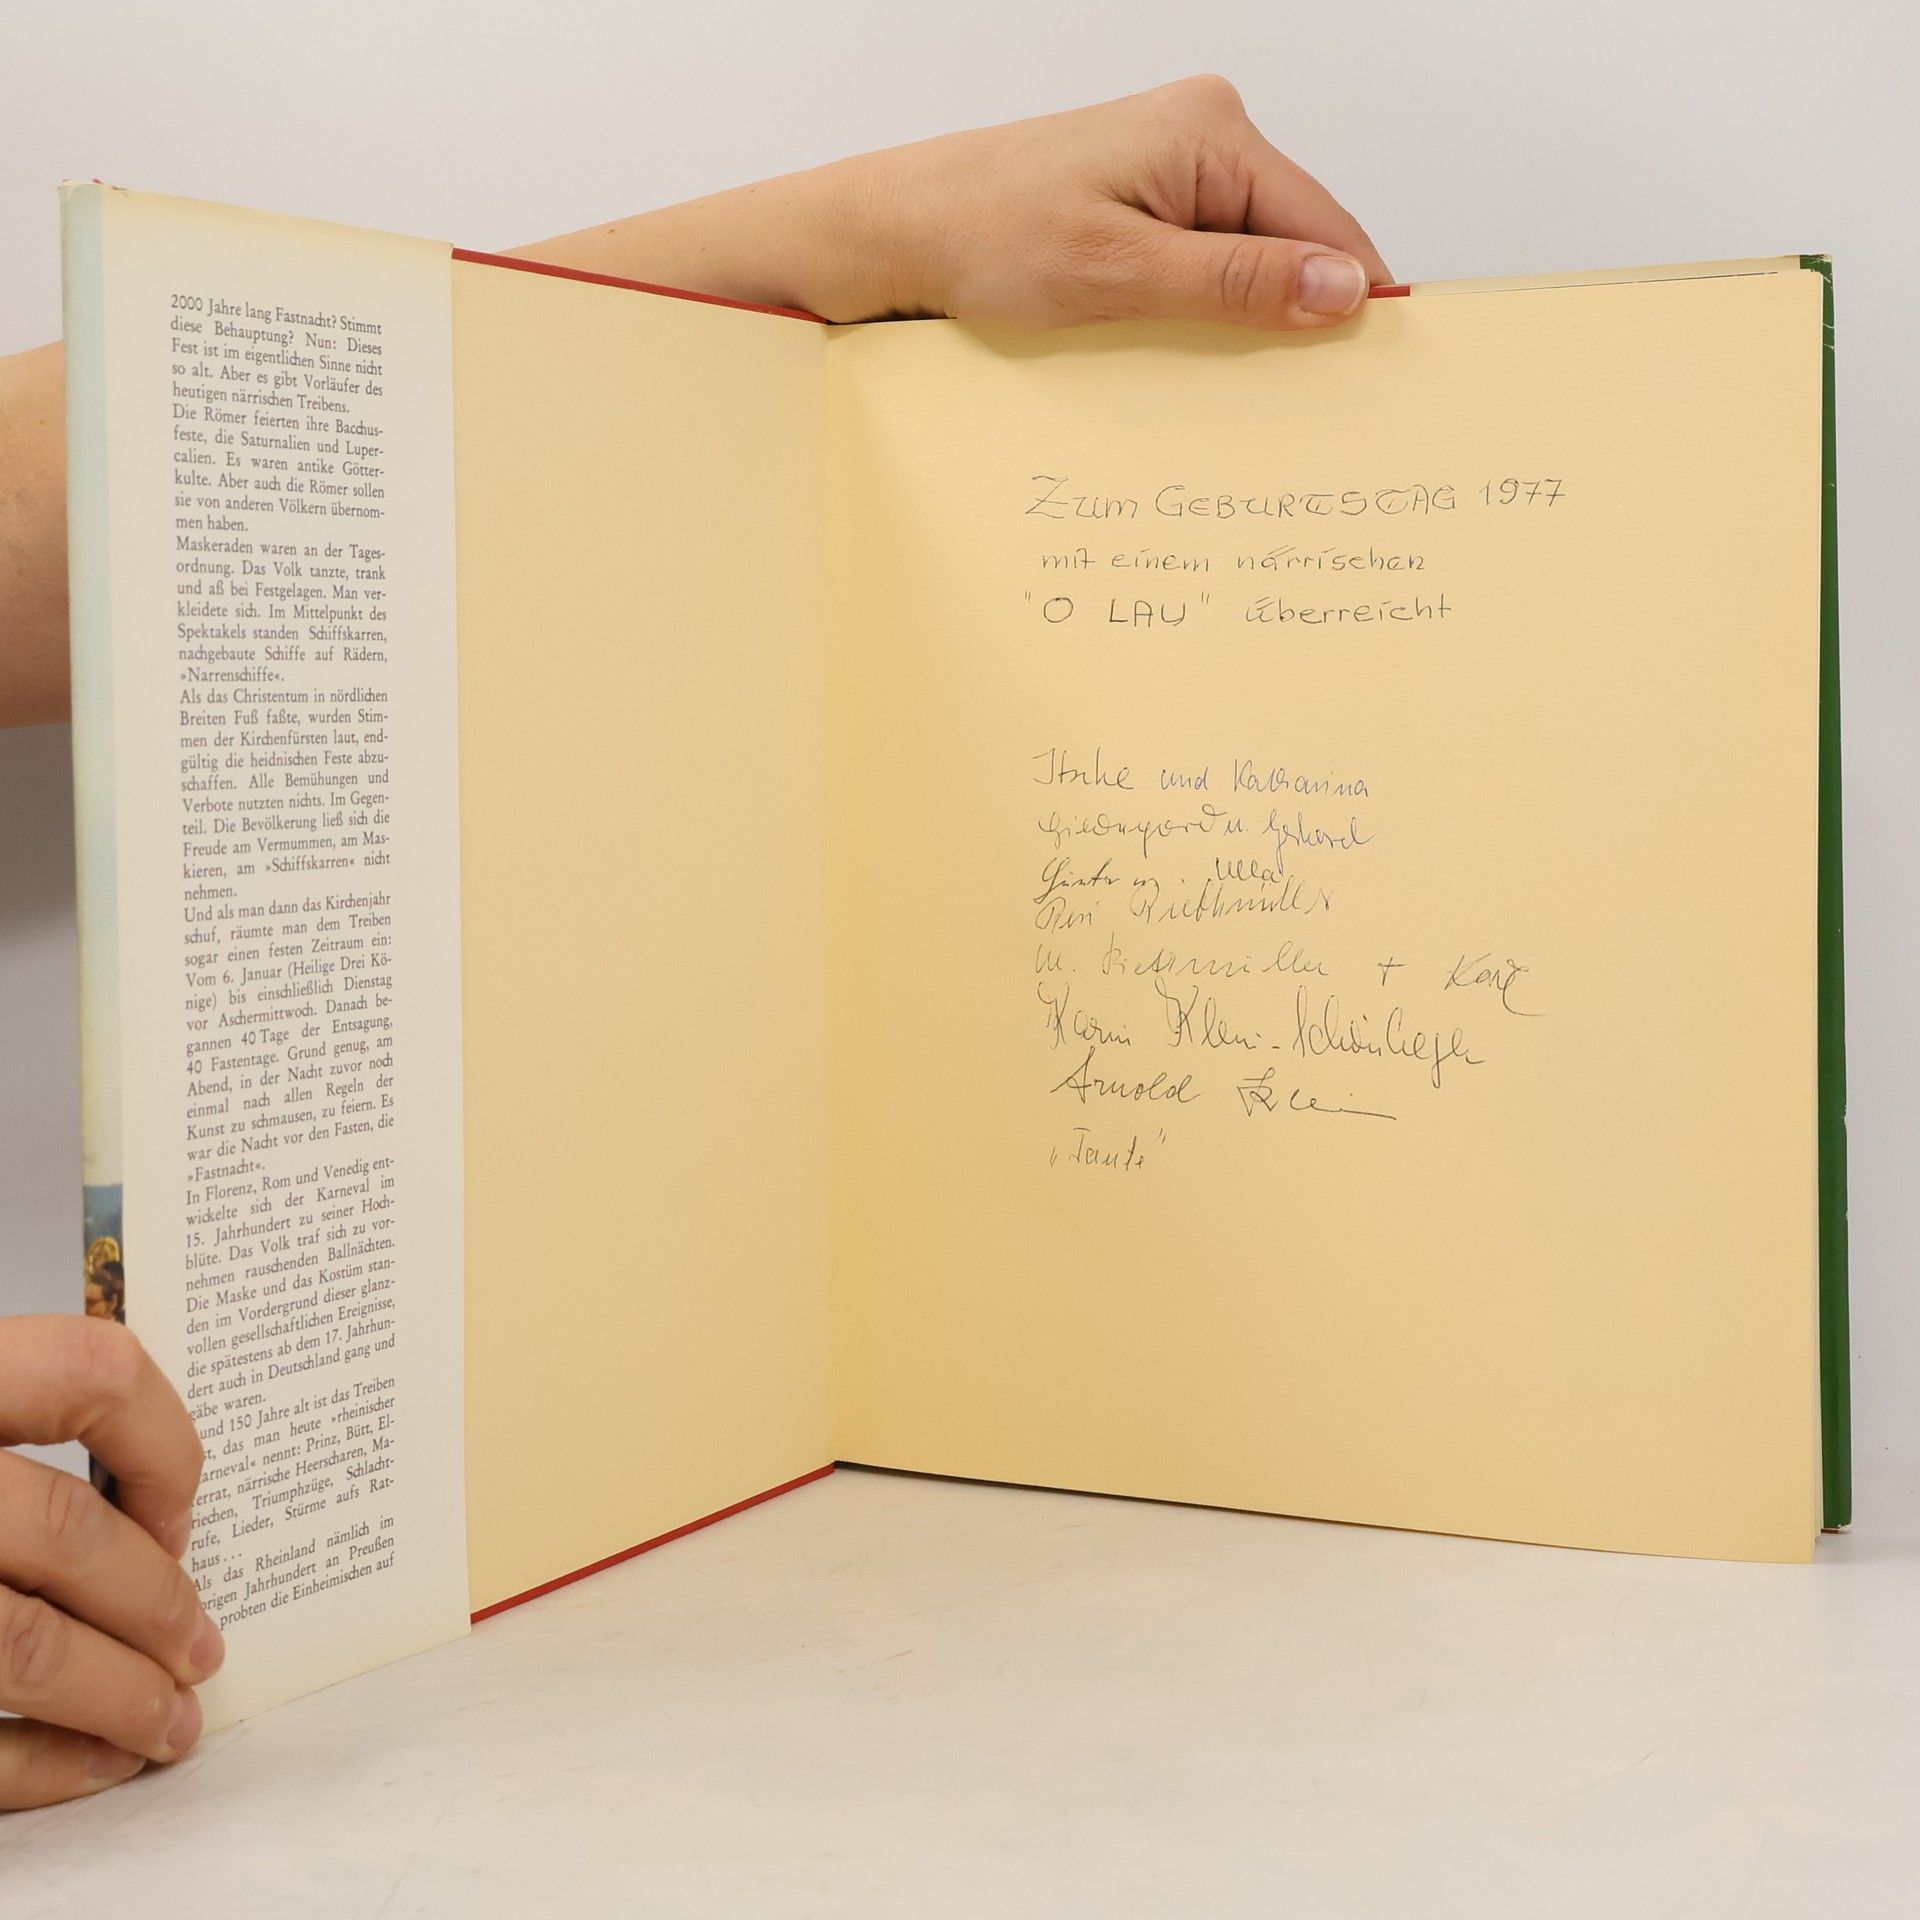 2000 Jahre lang Fastnacht? Stimmt
diese Behauptung? Nun: Dieses
Fest ist im eigentlichen Sinne nicht
so alt. Aber es gibt Vorläufer des
heutigen närrischen Treibens.
Die Römer feierten ihre Bacchus-
feste, die Saturnalien und Luper-
calien. Es waren antike Götter-
kulte. Aber auch die Römer sollen
sie von anderen Völkern übernom-
men haben.
Maskeraden waren an der Tages-
ordnung. Das Volk tanzte, trank
und aß bei Festgelagen. Man ver-
kleidete sich. Im Mittelpunkt des
Spektakels standen Schiffskarren,
nachgebaute Schiffe auf Rädern,
»Narrenschiffe«.
Als das Christentum in nördlichen
Breiten Fuß faßte, wurden Stim-
men der Kirchenfürsten laut, end-
gültig die heidnischen Feste abzu-
schaffen. Alle Bemühungen und
Verbote nutzten nichts. Im Gegen-
teil. Die Bevölkerung ließ sich die
Freude am Vermummen, am Mas-
kieren, am »Schiffskarren« nicht
nehmen.
Und als man dann das Kirchenjahr
schuf, räumte man dem Treiben
sogar einen festen Zeitraum ein:
Vom 6. Januar (Heilige Drei Kö-
nige) bis einschließlich Dienstag
vor Aschermittwoch. Danach be-
gannen 40 Tage der Entsagung,
40 Fastentage. Grund genug, am
Abend, in der Nacht zuvor noch
einmal nach allen Regeln der
Kunst zu schmausen, zu feiern. Es
war die Nacht vor den Fasten, die
»Fastnacht«.
In Florenz, Rom und Venedig ent-
wickelte sich der Karneval im
15. Jahrhundert zu seiner Hoch-
blüte. Das Volk traf sich zu vor-
nehmen rauschenden Ballnächten.
Die Maske und das Kostüm stan-
den im Vordergrund dieser glanz-
vollen gesellschaftlichen Ereignisse,
die spätestens ab dem 17. Jahrhun-
dert auch in Deutschland gang und
gäbe waren.
und 150 Jahre alt ist das Treiben
st, das man heute »rheinischer
arneval« nennt: Prinz, Bütt, El-
errat, närrische Heerscharen, Ma-
riechen, Triumphzüge, Schlacht-
rufe, Lieder, Stürme aufs Rat-
haus...
Als das Rheinland nämlich im
origen Jahrhundert an Preußen
probten die Einheimischen auf
ZUM GEBURTSTAG 1977
mit einem närrischen
"O LAU" überreicht
und Katharina
u. Gerhard
Günter u. Ulla
Resi
M. + Karl
Karin Klein-
Arnold Klein
„Tante"